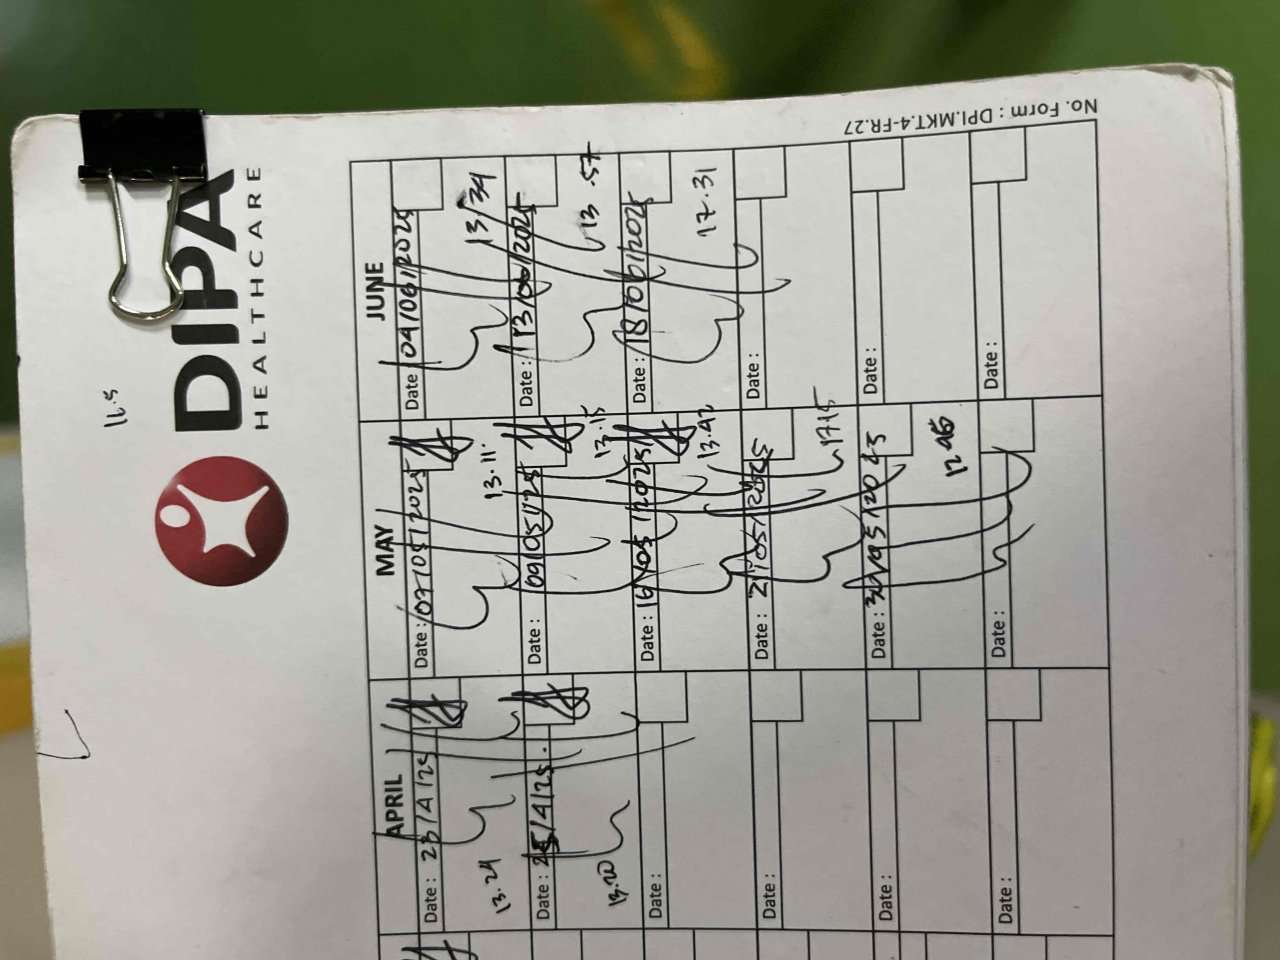 No. Form : DPI.MKT.4-FR.27
DIPA
HEALTHCARE
11.5
APRIL
MAY
JUNE
Date : 23/4/25
13.24
Date : 07/05/2025
13.11
Date : 04/06/2025
13/34
Date : 25/4/25.
13.20
Date : 09/05/25
13.15
Date : 13/06/2025
13.57
Date :
Date : 16/05/2025
13.42
Date : 18/06/2025
17.31
Date :
Date : 21/05/2025
17.15
Date :
Date :
Date : 30/05/2025
Date :
Date :
Date :
Date :